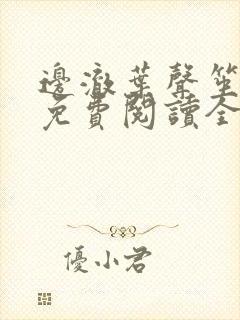 邊澈葉聲笙
免費閱讀全
優小君